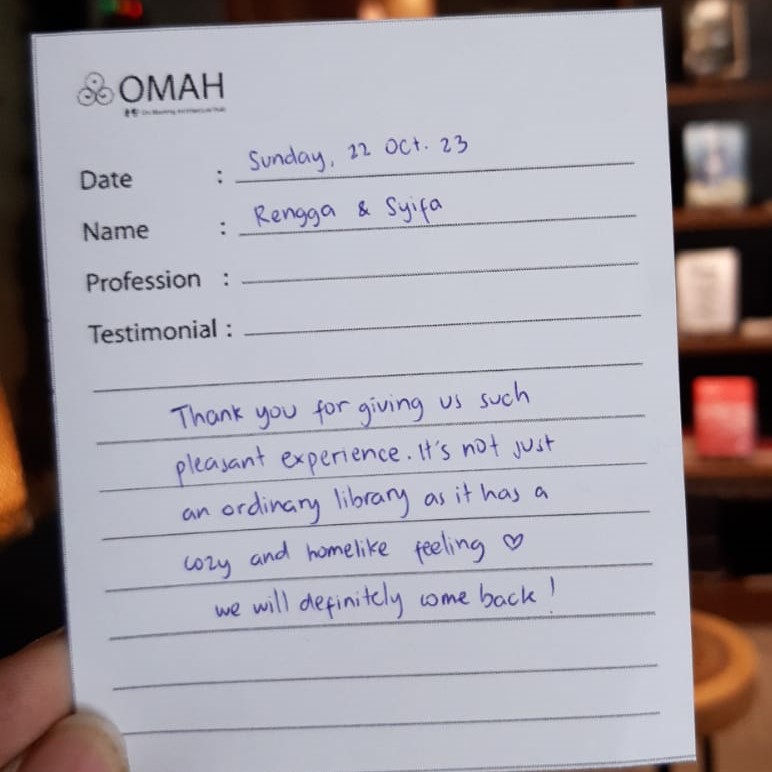 OMAH
Date : Sunday, 22 Oct. 23
Name : Rengga & Syifa
Profession :
Testimonial :
Thank you for giving us such
pleasant experience. It's not just
an ordinary library as it has a
cozy and homelike feeling ♡
we will definitely come back!